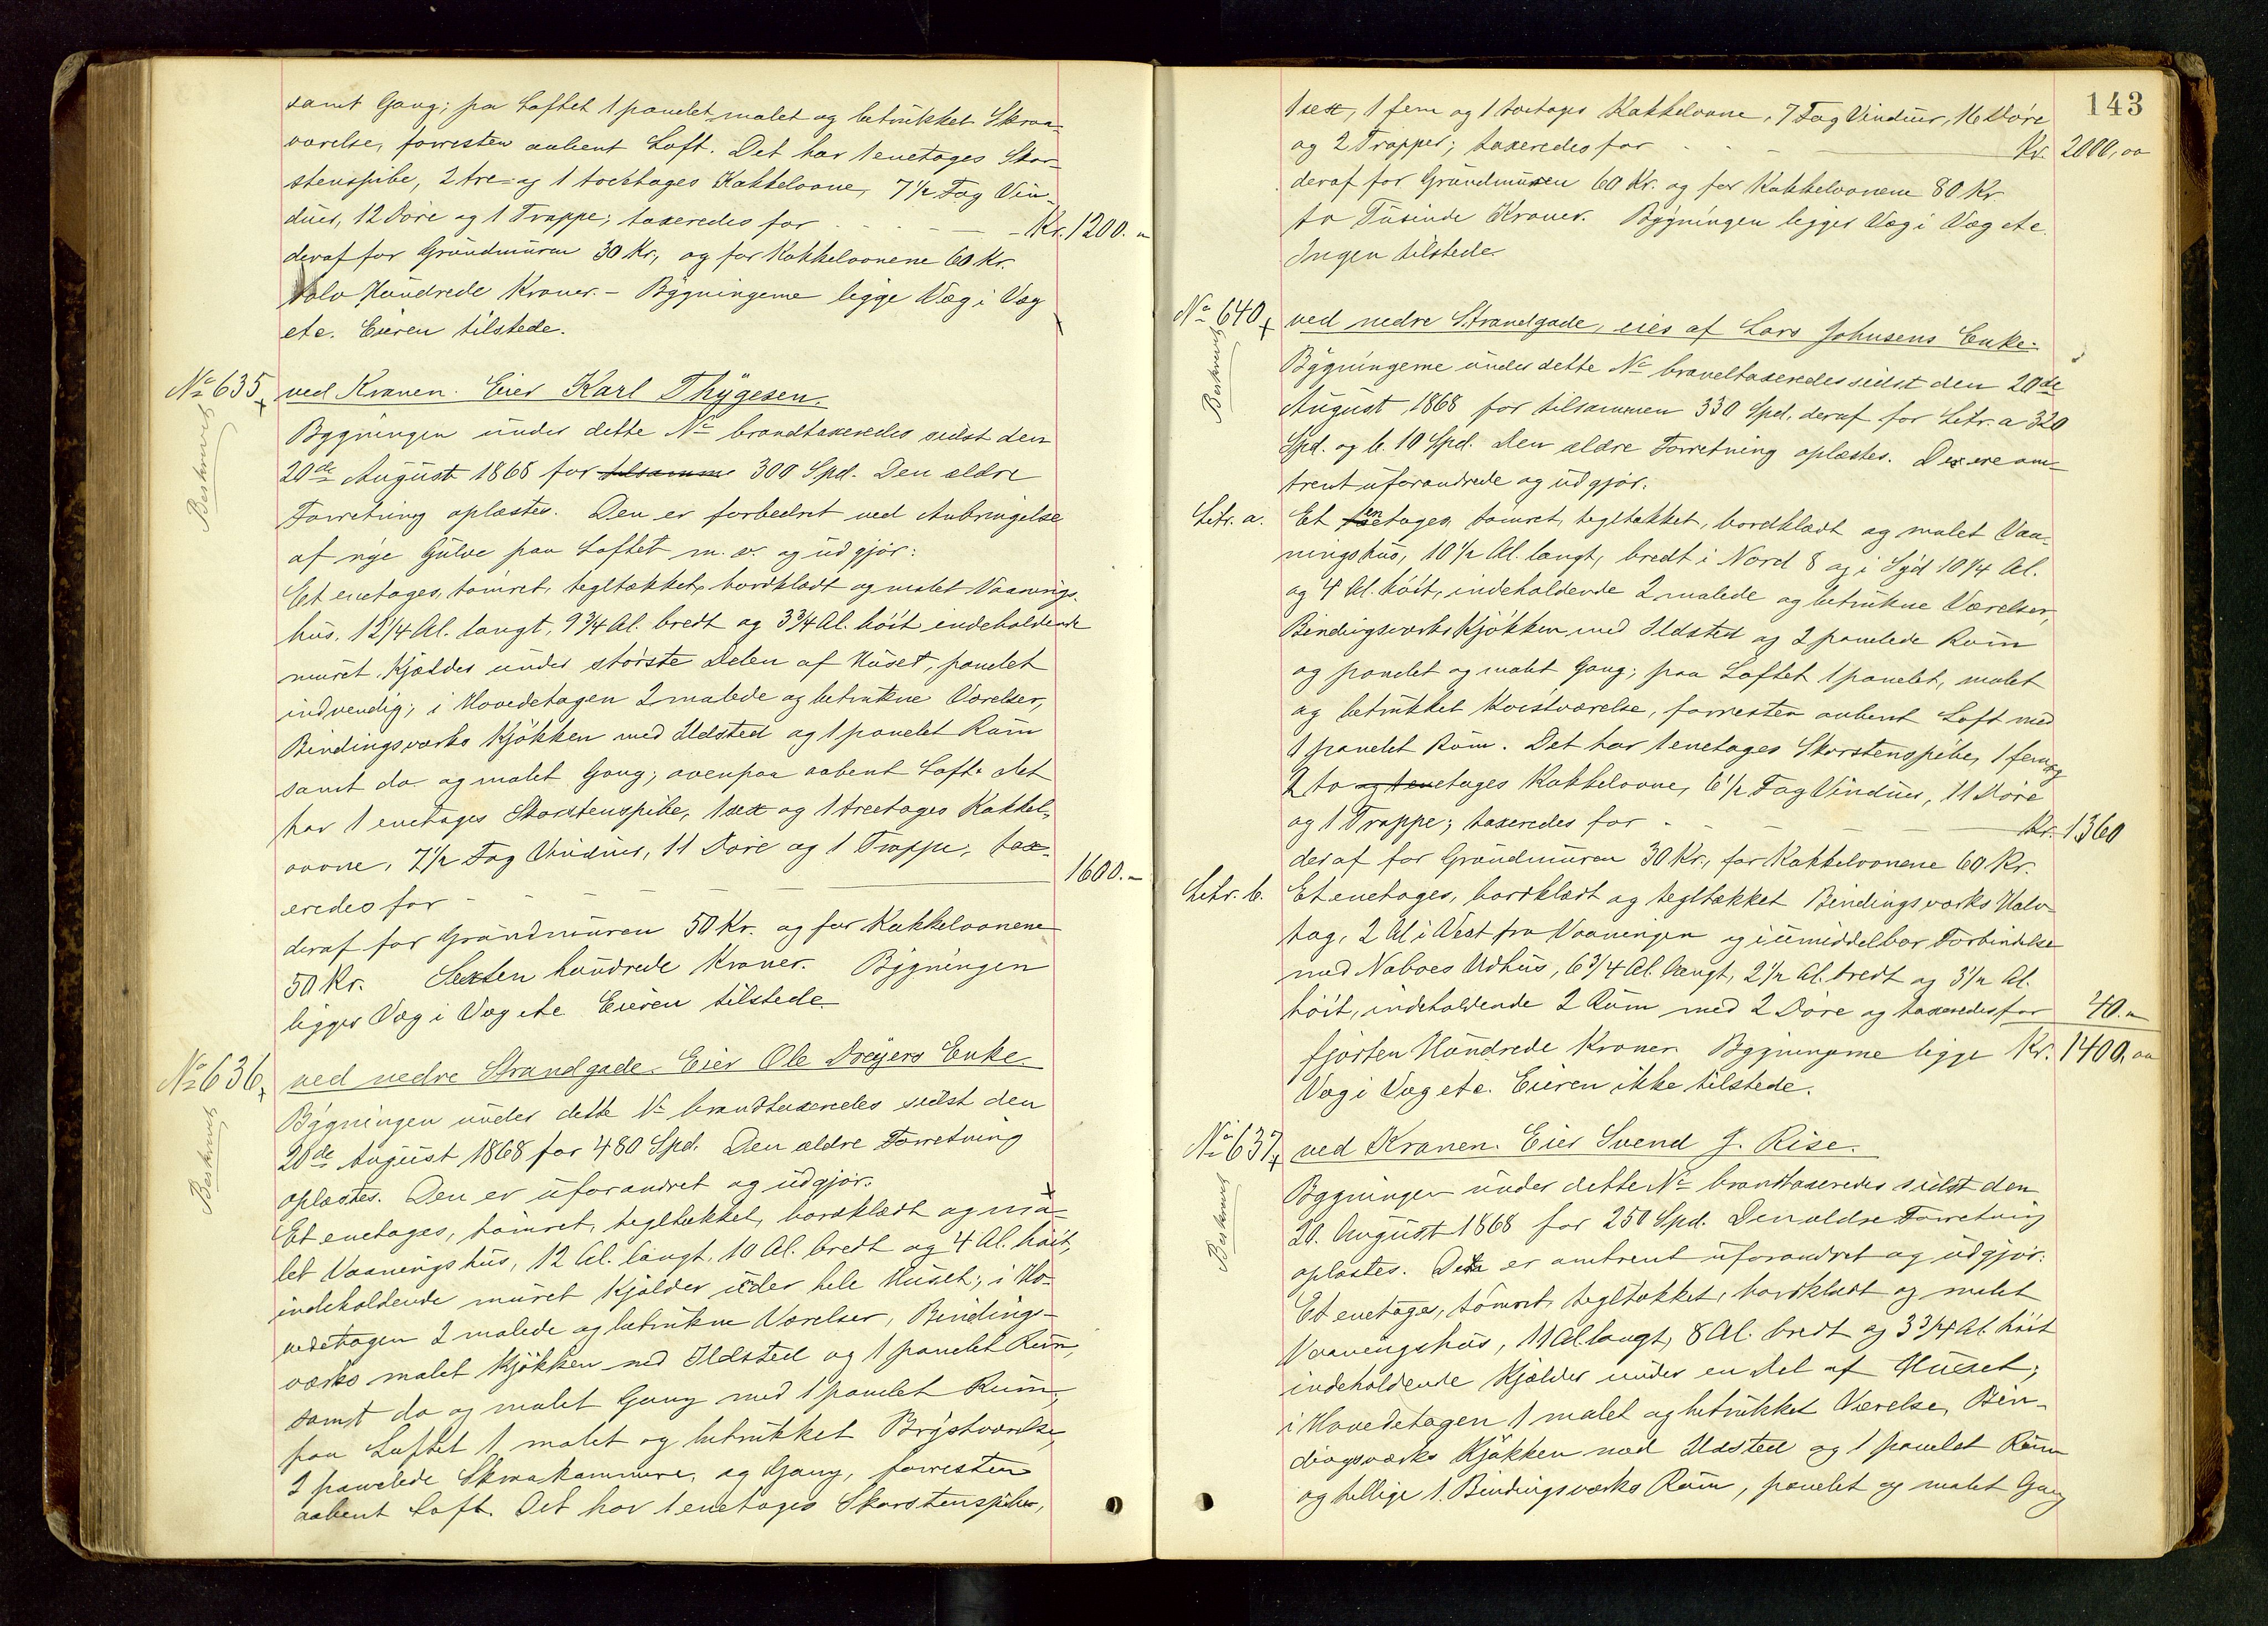 samt Gang; paa Loftet 1 panelet malet og betrukket Skraa-
værelse, forresten aabent Loft. Det har 1 enetages Skor-
stenspibe, 2 tre- og 1 toetages Kakkelovne, 7 1/2 Fag Vin-
duer, 12 Døre og 1 Trappe; taxeredes for - - - - Kr. 1200. "
deraf for Grundmuren 30 Kr., og for Kakkelovnene 60 Kr.
Tolv Hundrede Kroner. – Bygningerne ligge Væg i Væg
etc. Eieren tilstede.
No 635 ved Kranen. Eier Karl Thygesen.
Beskrevet
Bygningen under dette No brandtaxeredes sidst den
20de August 1868 for tilsamme 300 Spd. Den ældre
Forretning oplæstes. Den er forbedret ved Anbringelse
af nye Gulve paa Loftet m. v. og udgjør:
Et enetages, tømret, tegltækket, bordklædt og malet Vaanings-
hus, 12 1/4 Al. langt, 9 3/4 Al. bredt og 3 3/4 Al. høit indeholdende
muret Kjælder under største Delen af Huset, panelet
indvendig; i Hovedetagen 2 malede og betrukne Værelser,
Bindingsværks Kjøkken med Ildsted og 1 panelet Rum
samt do og malet Gang; ovenpaa aabent Loft. Det
har 1 enetages Skorstenspibe, 1 sex og 1 treetages Kakkel-
ovne, 7 1/2 Fag Vinduer, 11 Døre og 1 Trappe, tax-
eredes for - - - - 1600. –
deraf for Grundmuren 50 Kr. og for Kakkelovnene
50 Kr. Sexten hundrede Kroner. Bygningen
ligger Væg i Væg etc Eieren tilstede
No 636 ved nedre Strandgade. Eier Ole Dreyers Enke.
Beskrevet
Bygningen under dette No brandtaxeredes sidst den
20de August 1868 for 480 Spd. Den ældre Forretning
oplæstes. Den er uforandret og udgjør:
Et enetages, tømret, tegltækket, bordklædt og ma-
let Vaaningshus, 12 Al. langt, 10 Al. bredt og 4 Al. høit,
indeholdende muret Kjælder under hele Huset; i Ho-
vedetagen 2 malede og betrukne Værelser, Bindings-
værks malet Kjøkken med Ildsted og 1 panelet Rum,
samt do og malet Gang med 1 panelet Rum;
paa Loftet 1 malet og betrukket Brystværelse,
2 panelede Skraakammere, og Gang, forresten
aabent Loft. Det har 1 enetages Skorstenspibe,
143
1 sex, 1 fem og 1 toetages Kakkelovne, 7 Fag Vinduer, 16 Døre
og 2 Trapper; taxeredes for - - - Kr. 2000, oo
deraf for Grundmuren 60 Kr. og for Kakkelovnene 80 Kr.
to Tusinde Kroner. Bygningen ligger Væg i Væg etc.
Ingen tilstede.
No 640 ved nedre Strandgade, eies af Lars Johnsens Enke.
Beskrevet
Bygningerne under dette No brandtaxeredes sidst den 20de
August 1868 for tilsammen 330 Spd. deraf for Litr. a 320
Spd. og b. 10 Spd. Den ældre Forretning oplæstes. De ere om-
trent uforandrede og udgjør:
Litr. a. Et enetages tømret, tegltækket, bordklædt og malet Vaa-
ningshus, 10 1/2 Al. langt, bredt i Nord 8 og i Syd 10 1/4 Al.
og 4 Al. høit, indeholdende 2 malede og betrukne Værelser,
Bindingsværks Kjøkken med Ildsted og 2 panelede Rum
og panelet og malet Gang; paa Loftet 1 panelet, malet
og betrukket Kvistværelse, forresten aabent Loft med
1 panelet Rum. Det har 1 enetages Skorstenspibe, 1 fem og
2 to og 1 enetages Kakkelovne, 6 1/2 Fag Vinduer, 11 Døre
og 1 Trappe; taxeredes for - - - Kr. 1360
deraf for Grundmuren 30 Kr., for Kakkelovnene 60 Kr.
Litr. b. Et enetages, bordklædt og tegltækket Bindingsværks Halv-
tag, 2 Al i Vest fra Vaaningen og i umiddelbar Forbindelse
med Naboes Udhus, 6 3/4 Al. langt, 2 1/2 Al. bredt og 3 1/2 Al.
høit, indeholdende 2 Rum med 2 Døre og taxeredes for 40. "
fjorten Hundrede Kroner Bygningerne ligge Kr. 1400, oo
Væg i Væg etc. Eieren ikke tilstede.
No 637 ved Kranen. Eier Svend J. Rise.
Beskrevet
Bygningen under dette No brandtaxeredes sidst den
20. August 1868 for 250 Spd. Den ældre Forretning
oplæstes. Den er omtrent uforandret og udgjør:
Et enetages, tømret, tegltækket, bordklædt og malet
Vaaningshus, 11 Al langt, 8 Al. bredt og 3 3/4 Al. høit
indeholdende Kjælder under en Del af Huset;
i Hovedetagen 1 malet og betrukket Værelse, Bin-
dingsværks Kjøkken med Ildsted og 1 panelet Rum
og tillige 1 Bindingsværks Rum, panelet og malet Gang